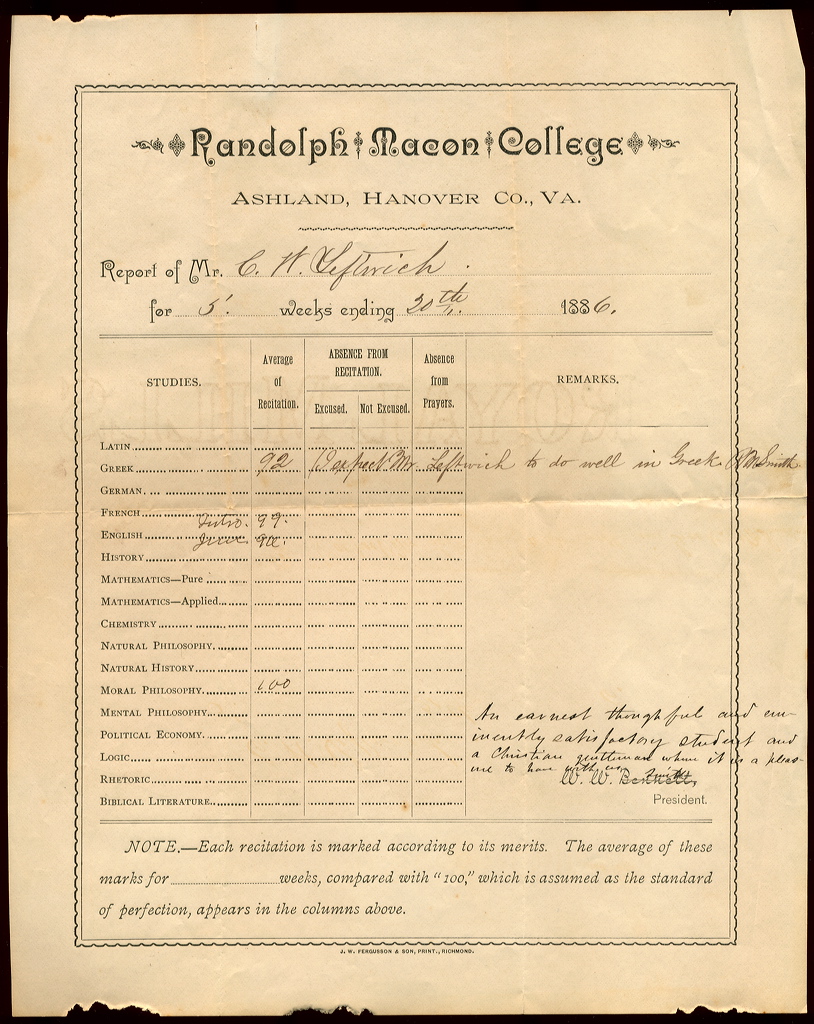 Randolph Macon College
ASHLAND, HANOVER CO., VA.
Report of Mr. C. W. Leftwich.
for 5' weeks ending 20th 1886.
STUDIES. Average of Recitation. ABSENCE FROM RECITATION. Excused. Not Excused. Absence from Prayers. REMARKS.
LATIN
GREEK 92 I expect Mr. Leftwich to do well in Greek. Smith
GERMAN.
FRENCH
Intro. 99.
ENGLISH
HISTORY
MATHEMATICS—Pure
MATHEMATICS—Applied
CHEMISTRY
NATURAL PHILOSOPHY.
NATURAL HISTORY
MORAL PHILOSOPHY. 100
MENTAL PHILOSOPHY.
POLITICAL ECONOMY.
LOGIC
RHETORIC
BIBLICAL LITERATURE.
An earnest thoughful and em-
inently satisfactory student and
a Christian gentleman whom it is a pleas-
ure to have with us.
W. W. Bennett, Smith
President.
NOTE.—Each recitation is marked according to its merits. The average of these
marks for weeks, compared with "100," which is assumed as the standard
of perfection, appears in the columns above.
J. W. FERGUSSON & SON, PRINT., RICHMOND.